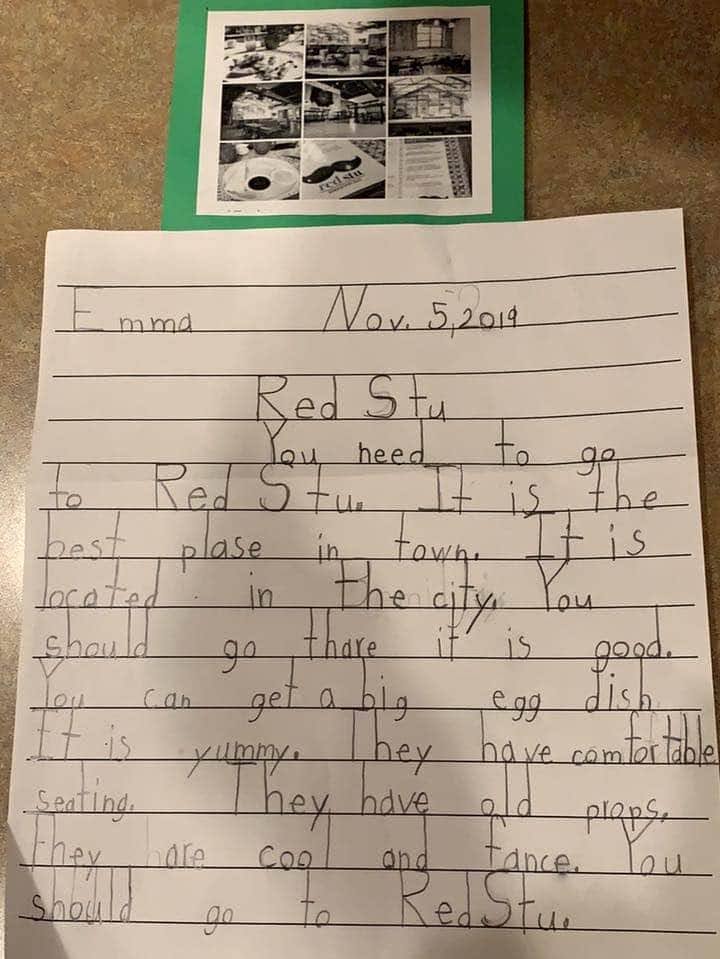 red stu
Emma Nov. 5, 2019
Red Stu
You need to go
to Red Stu. It is the
best plase in town. It is
located in the city. You
should go thare it is good.
You can get a big egg dish
It is yummy. They have comfortable
seating. They have old props.
They are cool and fance. You
should go to Red Stu.